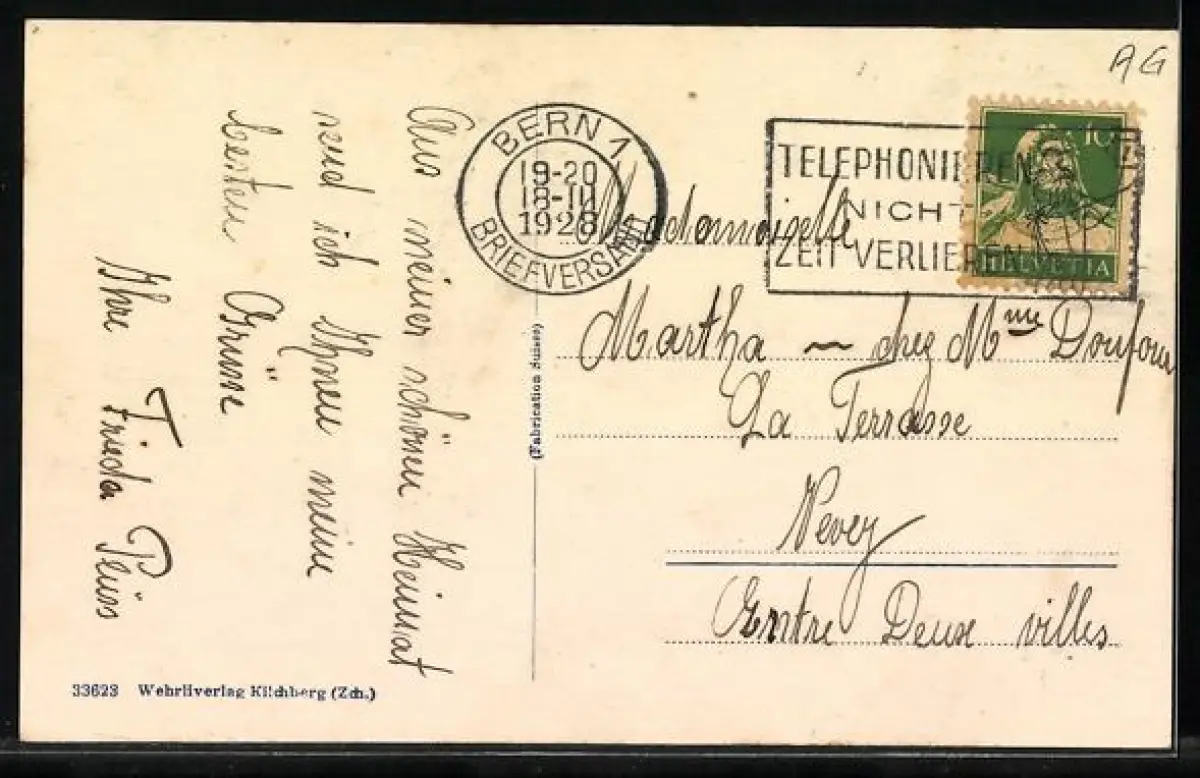 AG
BERN 1
19-20
18-III
1928
BRIEFVERSAND
TELEPHONIEREN
NICHT
ZEIT VERLIEREN
10
HELVETIA
Aus meiner schönen Heimat
send ich Ihnen meine
besten Grüsse
Ihre Frieda
Mademoiselle
Martha ~ chez Mme
La Terrasse
Vevey
Entre Deux villes
(Fabrication Suisse)
33623 Wehrliverlag Kilchberg (Zch.)